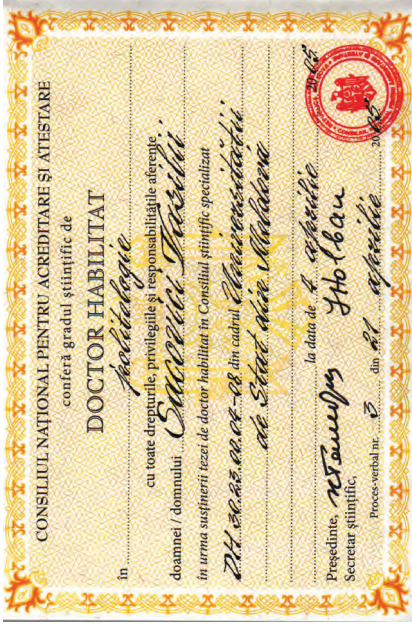 CONSILIUL NAȚIONAL PENTRU ACREDITARE ȘI ATESTARE
conferă gradul științific de
DOCTOR HABILITAT
în politologie
cu toate drepturile, privilegiile și responsabilitățile aferente
doamnei / domnului Saccovici Vasilii
în urma susținerii tezei de doctor habilitat în Consiliul științific specializat
DH 30.23.00.04-02 din cadrul Universitatii
de Stat din Moldova
la data de 4 aprilie 2005
Președinte,
Secretar științific, Holban
Proces-verbal nr. 3 din 21 aprilie 2005